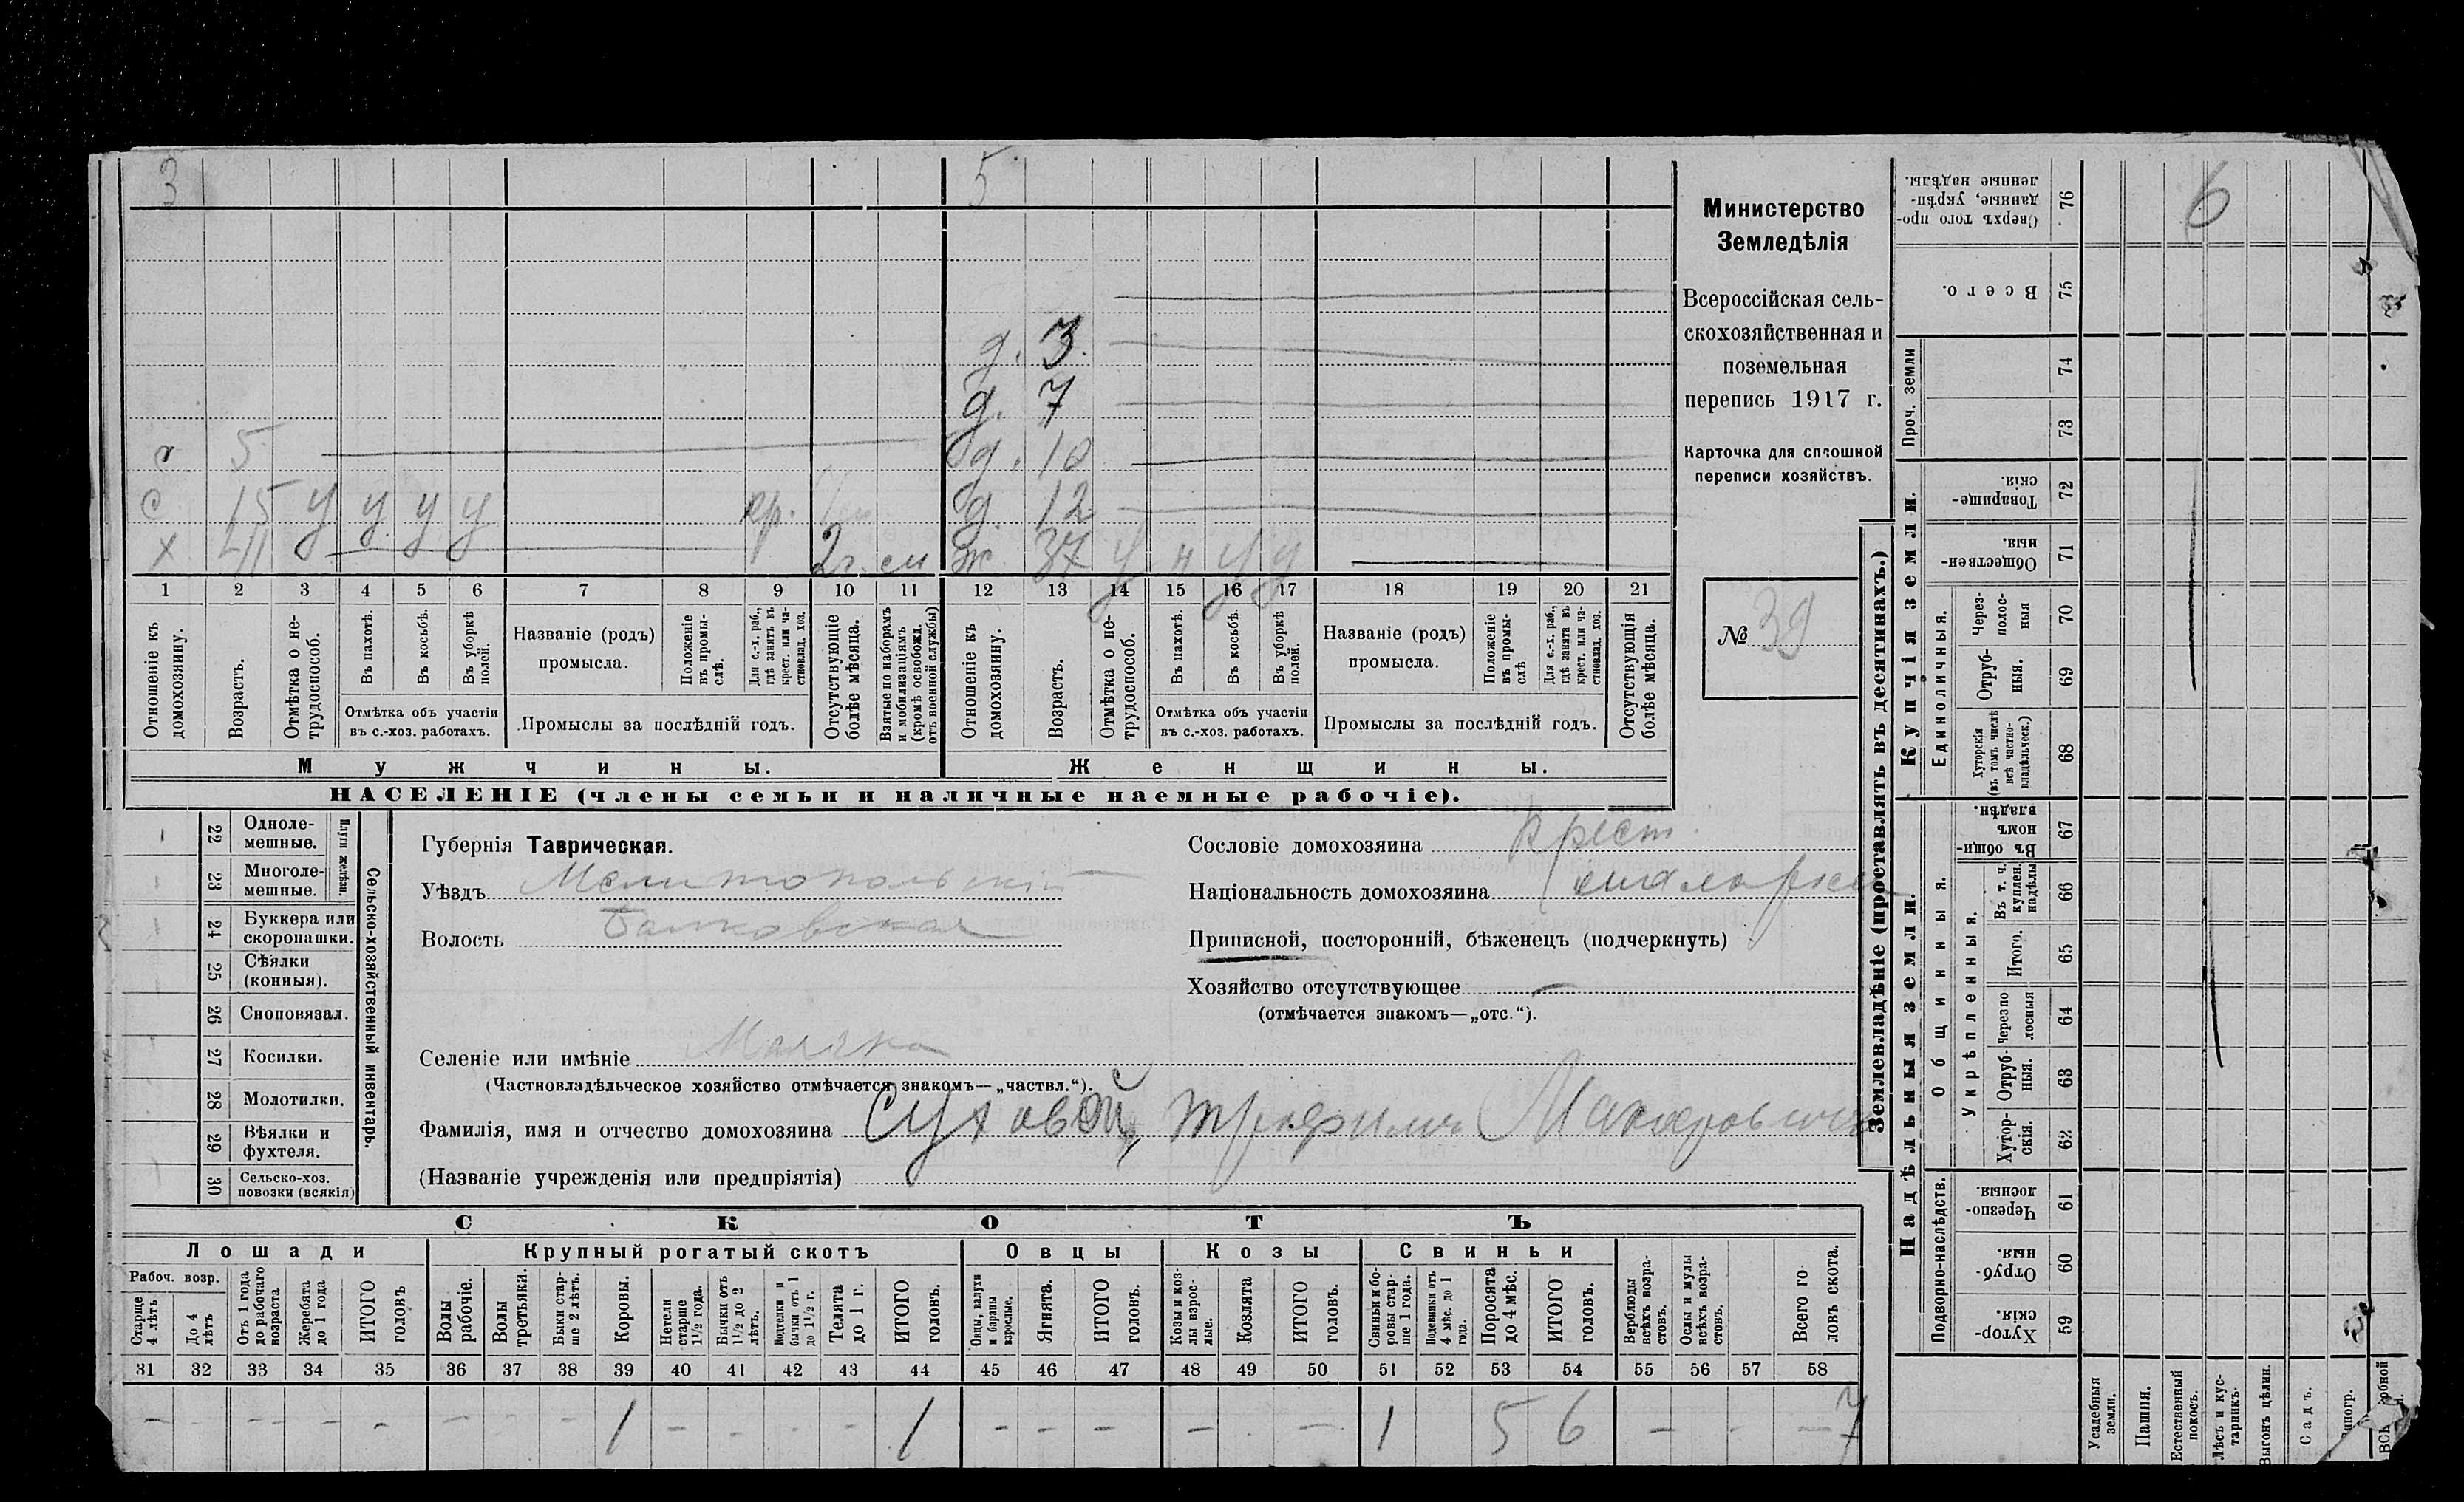 3 5
д. 3.
д. 7
с 5 д. 10
с 15 у у у у кр. д. 12
х 41 2 г. ж 37 у н у у
1 2 3 4 5 6 7 8 9 10 11 12 13 14 15 16 17 18 19 20 21
Отношеніе къ домохозяину.
Возрастъ.
Отмѣтка о не-трудоспособ.
Въ пахотѣ.
Въ косьбѣ.
Въ уборкѣ полей.
Отмѣтка объ участіи въ с.-хоз. работахъ.
Названіе (родъ) промысла.
Положеніе въ промы-слѣ.
Для с.-х. раб., гдѣ занятъ въ крест. или ча-стновлад. хоз.
Промыслы за послѣдній годъ.
Отсутствующіе болѣе мѣсяца.
Взятые по наборамъ и мобилизаціямъ (кромѣ освобожд. отъ военной службы)
Отношеніе къ домохозяину.
Возрастъ.
Отмѣтка о не-трудоспособ.
Въ пахотѣ.
Въ косьбѣ.
Въ уборкѣ полей.
Отмѣтка объ участіи въ с.-хоз. работахъ.
Названіе (родъ) промысла.
Положеніе въ промы-слѣ
Для с.-х. раб., гдѣ занята въ крест. или ча-стновлад. хоз.
Промыслы за послѣдній годъ.
Отсутствующія болѣе мѣсяца.
Мужчины. Женщины.
НАСЕЛЕНІЕ (члены семьи и наличные наемные рабочіе).
Министерство
Земледѣлія
Всероссійская сель-
скохозяйственная и
поземельная
перепись 1917 г.
Карточка для сплошной
переписи хозяйствъ.
№ 39
22 Одноле-мешные.
23 Многоле-мешные.
Плуги желѣзн.
24 Буккера или скоропашки.
25 Сѣялки (конныя).
26 Сноповязал.
27 Косилки.
28 Молотилки.
29 Вѣялки и фухтеля.
30 Сельско-хоз. повозки (всякія)
Сельско-хозяйственный инвентарь.
Губернія Таврическая.
Уѣздъ Мелитопольскій
Волость Балковская
Селеніе или имѣніе Маячка
(Частновладѣльческое хозяйство отмѣчается знакомъ—„частвл.“).
Сословіе домохозяина Крест.
Національность домохозяина малорос
Приписной, посторонній, бѣженецъ (подчеркнуть)
Хозяйство отсутствующее —
(отмѣчается знакомъ—„отс.“).
Фамилія, имя и отчество домохозяина Суховой, Трофимъ Макаровичъ
(Названіе учрежденія или предпріятія)
СКОТЪ
Лошади Крупный рогатый скотъ Овцы Козы Свиньи
Рабоч. возр.
Старше 4 лѣтъ
До 4 лѣтъ
Отъ 1 года до рабочаго возраста
Жеребята до 1 года
ИТОГО головъ
Волы рабочіе.
Волы третьяки.
Быки стар-ше 2 лѣтъ.
Коровы.
Нетели старше 1½ года.
Бычки отъ 1½ до 2 лѣтъ.
Подтелки и бычки отъ 1 до 1½ г.
Телята до 1 г.
ИТОГО головъ.
Овцы, валухи и бараны взрослые.
Ягнята.
ИТОГО головъ.
Козы и коз-лы взрос-лые.
Козлята
ИТОГО головъ.
Свиньи и бо-ровы стар-ше 1 года.
Подсвинки отъ 4 мѣс. до 1 года.
Поросята до 4 мѣс.
ИТОГО головъ.
Верблюды всѣхъ возра-стовъ.
Ослы и мулы всѣхъ возра-стовъ.
Всего го-ловъ скота.
31 32 33 34 35 36 37 38 39 40 41 42 43 44 45 46 47 48 49 50 51 52 53 54 55 56 57 58
— — — — — — — — 1 — — — — 1 — — — — — 1 5 6 — — — 7
Землевладѣніе (проставлять въ десятинахъ.)
Надѣльныя земли. Купчія земли.
Сверхъ того про-данные, укрѣп-ленные надѣлы. 76
Всего. 75
Проч. земли
74
73
Товарище-скія. 72
Обществен-ныя. 71
Единоличныя.
Через-полос-ныя 70
Отруб-ныя. 69
Хуторскія (въ томъ числѣ всѣ частно-владѣльческ.) 68
Общинныя.
Въ общи-номъ владѣн. 67
Укрѣпленныя.
Въ т. ч. куплен. надѣлы 66
Итого. 65
Черезпо-лосныя 64
Отруб-ныя. 63
Хутор-скія. 62
Подворно-наслѣдств.
Черезпо-лосныя. 61
Отруб-ныя. 60
Хутор-скія. 59
Усадебныя земли.
Пашня.
Естественный покосъ.
Лѣсъ и кус-тарникъ.
Выгонъ цѣлин.
Садъ.
6